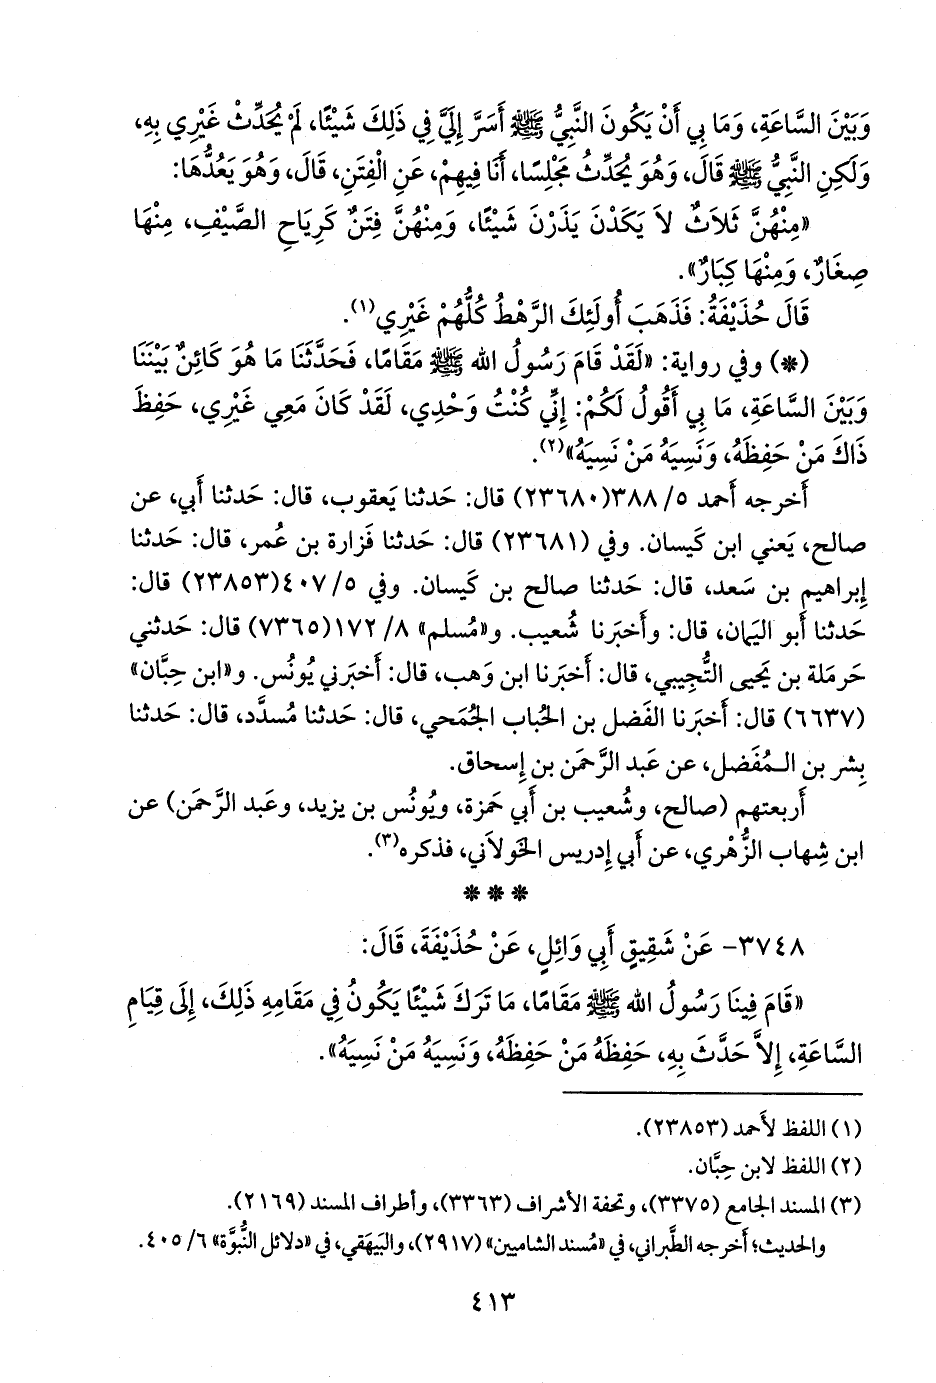 وَبَيْنَ السَّاعَةِ، وَمَا بِي أَنْ يَكُونَ النَّبِيُّ ﷺ أَسَرَّ إِلَيَّ فِي ذَلِكَ شَيْئًا، لَمْ يُحَدِّثْ غَيْرِي بِهِ،
وَلَكِنِ النَّبِيُّ ﷺ قَالَ، وَهُوَ يُحَدِّثُ مَجْلِسًا، أَنَا فِيهِمْ، عَنِ الْفِتَنِ، قَالَ، وَهُوَ يَعُدُّهَا:
«مِنْهُنَّ ثَلَاثٌ لاَ يَكَدْنَ يَذَرْنَ شَيْئًا، وَمِنْهُنَّ فِتَنٌ كَرِيَاحِ الصَّيْفِ، مِنْهَا
صِغَارٌ، وَمِنْهَا كِبَارٌ».
قَالَ حُذَيْفَةُ: فَذَهَبَ أُولَئِكَ الرَّهْطُ كُلُّهُمْ غَيْرِي(١).
(*) وفي رواية: «لَقَدْ قَامَ رَسُولُ الله ﷺ مَقَامًا، فَحَدَّثَنَا مَا هُوَ كَائِنٌ بَيْنَنَا
وَبَيْنَ السَّاعَةِ، مَا بِي أَقُولُ لَكُمْ: إِنِّي كُنْتُ وَحْدِي، لَقَدْ كَانَ مَعِي غَيْرِي، حَفِظَ
ذَاكَ مَنْ حَفِظَهُ، وَنَسِيَهُ مَنْ نَسِيَهُ»(٢).
أَخرجه أَحمد ٥/ ٣٨٨(٢٣٦٨٠) قال: حَدثنا يَعقوب، قال: حَدثنا أَبي، عن
صالح، يَعني ابن كَيسان. وفي (٢٣٦٨١) قال: حَدثنا فَزارة بن عُمر، قال: حَدثنا
إِبراهيم بن سَعد، قال: حَدثنا صالح بن كَيسان. وفي ٥/ ٤٠٧(٢٣٨٥٣) قال:
حَدثنا أَبو اليَمان، قال: وأَخبَرنا شُعيب. و«مُسلم» ٨/ ١٧٢(٧٣٦٥) قال: حَدثني
حَرملة بن يَحيى التُّجِيبي، قال: أَخبَرنا ابن وَهب، قال: أَخبَرني يُونُس. و«ابن حِبَّان»
(٦٦٣٧) قال: أَخبَرنا الفَضل بن الحُباب الجُمَحي، قال: حَدثنا مُسدَّد، قال: حَدثنا
بِشر بن الـمُفَضل، عن عَبد الرَّحمَن بن إِسحاق.
أَربعتهم (صالح، وشُعيب بن أَبي حَمزة، ويُونُس بن يزيد، وعَبد الرَّحمَن) عن
ابن شِهاب الزُّهْري، عن أَبي إِدريس الخَولاَني، فذكره(٣).
* * *
٣٧٤٨- عَنْ شَقِيقٍ أَبِي وَائِلٍ، عَنْ حُذَيْفَةَ، قَالَ:
«قَامَ فِينَا رَسُولُ الله ﷺ مَقَامًا، مَا تَرَكَ شَيْئًا يَكُونُ فِي مَقَامِهِ ذَلِكَ، إِلَى قِيَامِ
السَّاعَةِ، إِلاَّ حَدَّثَ بِهِ، حَفِظَهُ مَنْ حَفِظَهُ، وَنَسِيَهُ مَنْ نَسِيَهُ».
(١) اللفظ لأَحمد (٢٣٨٥٣).
(٢) اللفظ لابن حِبَّان.
(٣) المسند الجامع (٣٣٧٥)، وتحفة الأشراف (٣٣٦٣)، وأطراف المسند (٢١٦٩).
والحديث؛ أَخرجه الطَّبراني، في «مُسند الشاميين» (٢٩١٧)، والبَيهَقي، في «دلائل النُّبوَّة» ٦/ ٤٠٥.
٤١٣